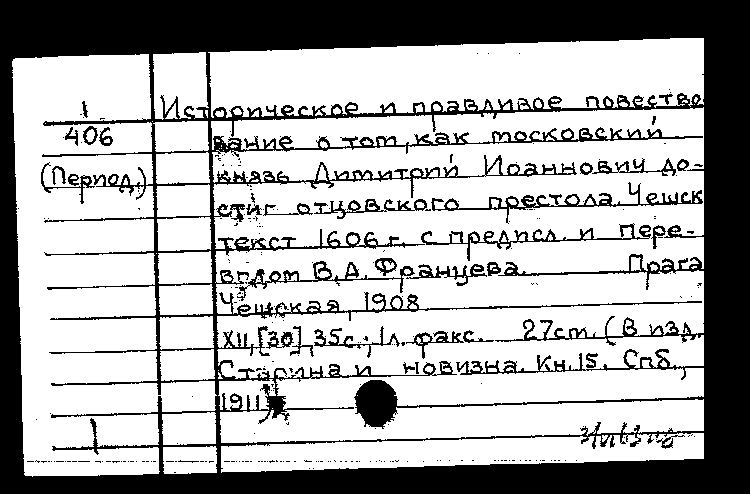 1
406
(Период.)
Историческое и правдивое повество
вание о том, как московский
князь Димитрий Иоаннович до-
стиг отцовского престола. Чешск
текст 1606 г. с предисл. и пере-
водом В.А. Францева. Прага
Чешская, 1908
XII, [30], 35с.; 1л. факс. 27cm. (В изд.
Старина и новизна. Кн. 15. Спб.,
1911)
1